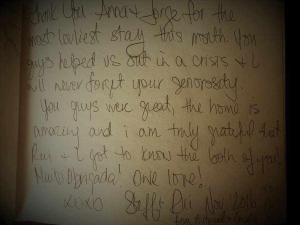 Thank You Anna & Jorge for the
most loveliest stay this month. You
guys helped us out in a crisis & I
will never forget your generosity.
You guys were great, the home is
amazing and i am truly grateful that
& I got to know the both of you!
Muito Obrigada! One love!
xoxo Steff & Nov 2016